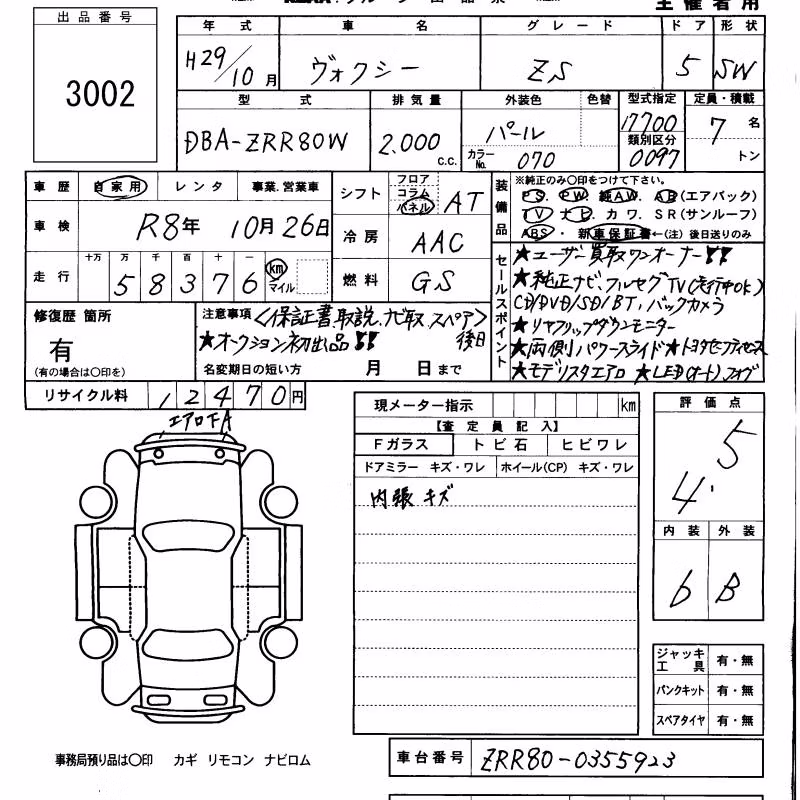 主催者用
出品番号
3002
年式 車名 グレード ドア 形状
H29/10月 ヴォクシー ZS 5 SW
型式 排気量 外装色 色替 型式指定 定員・積載
DBA-ZRR80W 2,000 c.c. パール 17700 7 名
類別区分
カラーNo. 070 0097 トン
車歴 自家用 レンタ 事業.営業車
シフト フロア コラム パネル AT
装備品 ※純正のみ〇印をつけて下さい。
P S. P W. 純A W. A B(エアバック)
T V・ナビ・カワ.S R(サンルーフ)
ABS・新車保証書←(注)後日送りのみ
車検 R8年 10月26日
冷房 AAC
走行 十万 万 千 百 十 一
58376 km マイル
燃料 GS
セールスポイント
★ユーザー買取ワンオーナー!!
★純正ナビ、フルセグTV(走行中OK)
CD/DVD/SD/BT、バックカメラ
★リヤフリップダウンモニター
★両側パワースライド★トヨタセーフティセンス
★モデリスタエアロ ★LED(オート)フォグ
修復歴 箇所
有
(有の場合は〇印を)
注意事項 <保証書、取説、ナビ取、スペア>後日
★オークション初出品!!
名変期日の短い方 月 日まで
リサイクル料 12470円
エアロ下A
現メーター指示 km
【査定員記入】
Fガラス トビ石 ヒビワレ
ドアミラー キズ・ワレ ホイール(CP) キズ・ワレ
内張キズ
評価点
5
4.
内装 外装
b B
ジャッキ工具 有・無
パンクキット 有・無
スペアタイヤ 有・無
事務局預り品は〇印 カギ リモコン ナビロム
車台番号 ZRR80-0355923